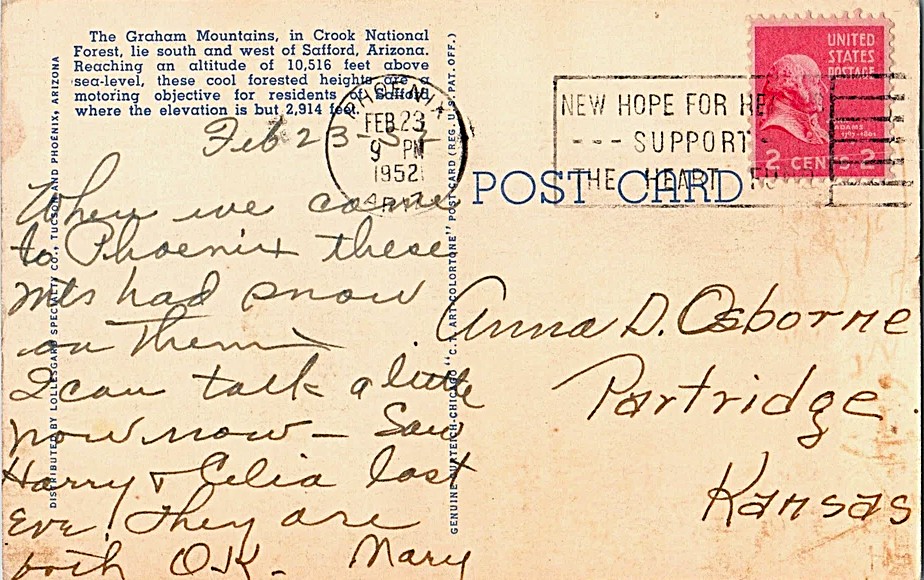 The Graham Mountains, in Crook National
Forest, lie south and west of Safford, Arizona.
Reaching an altitude of 10,516 feet above
sea-level, these cool forested heights are a
motoring objective for residents of Safford
where the elevation is but 2,914 feet.
DISTRIBUTED BY LOLLESGARD SPECIALTY CO., TUCSON AND PHOENIX, ARIZONA
Feb 23-52
When we came
to Phoenix these
mts had snow
on them
I can talk a little
now now — Saw
Harry & Celia last
Eve! They are
both O.K. Mary
GENUINE CURTEICH-CHICAGO "C.T. ART-COLORTONE" POST CARD (REG. U.S. PAT. OFF.)
PHOENIX
FEB 23
9 PM
1952
ARIZ
NEW HOPE FOR
--- SUPPORT
THE HEART FUND
UNITED
STATES
POSTAGE
ADAMS
1797-1801
2 CENTS 2
POST CARD
Anna D. Osborne
Partridge
Kansas